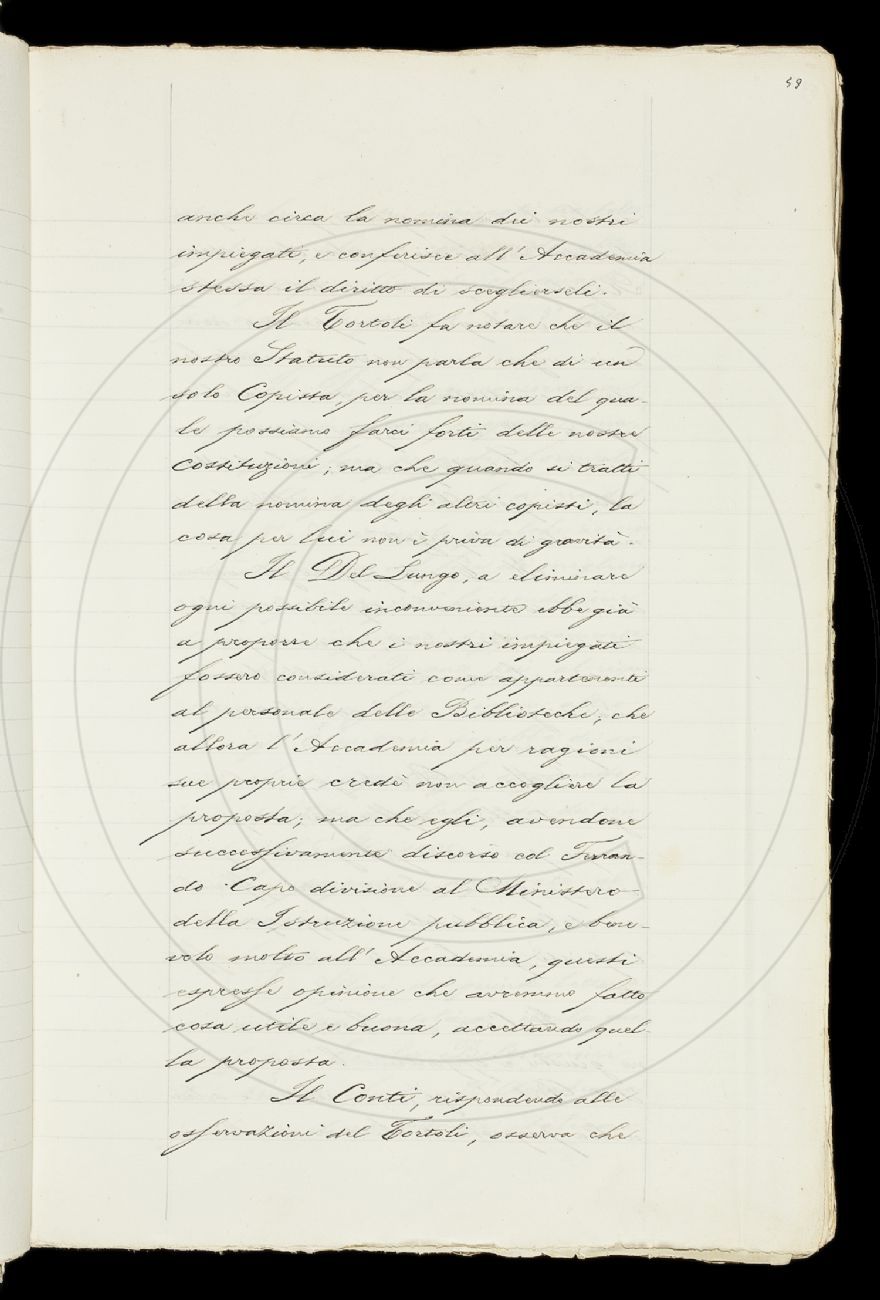 59
anche circa la nomina dei nostri
impiegati, e conferisce all'Accademia
stessa il diritto di sceglierseli.
Il Tortoli fa notare che il
nostro Statuto non parla che di un
solo Copista, per la nomina del qua-
le possiamo farci forti delle nostre
Costituzioni; ma che quando si tratti
della nomina degli altri copisti, la
cosa per lui non è priva di gravità.
Il Del Lungo, a eliminare
ogni possibile inconveniente ebbe già
a proporre che i nostri impiegati
fossero considerati come appartenenti
al personale delle Biblioteche; che
allora l'Accademia per ragioni
sue proprie credè non accogliere la
proposta; ma che egli, avendone
successivamente discorso col Ferran-
do Capo divisione al Ministero
della Istruzione pubblica, e bene-
volo molto all'Accademia, questi
espresse opinione che avremmo fatto
cosa utile e buona, accettando quel-
la proposta.
Il Conti, rispondendo alle
osservazioni del Tortoli, osserva che